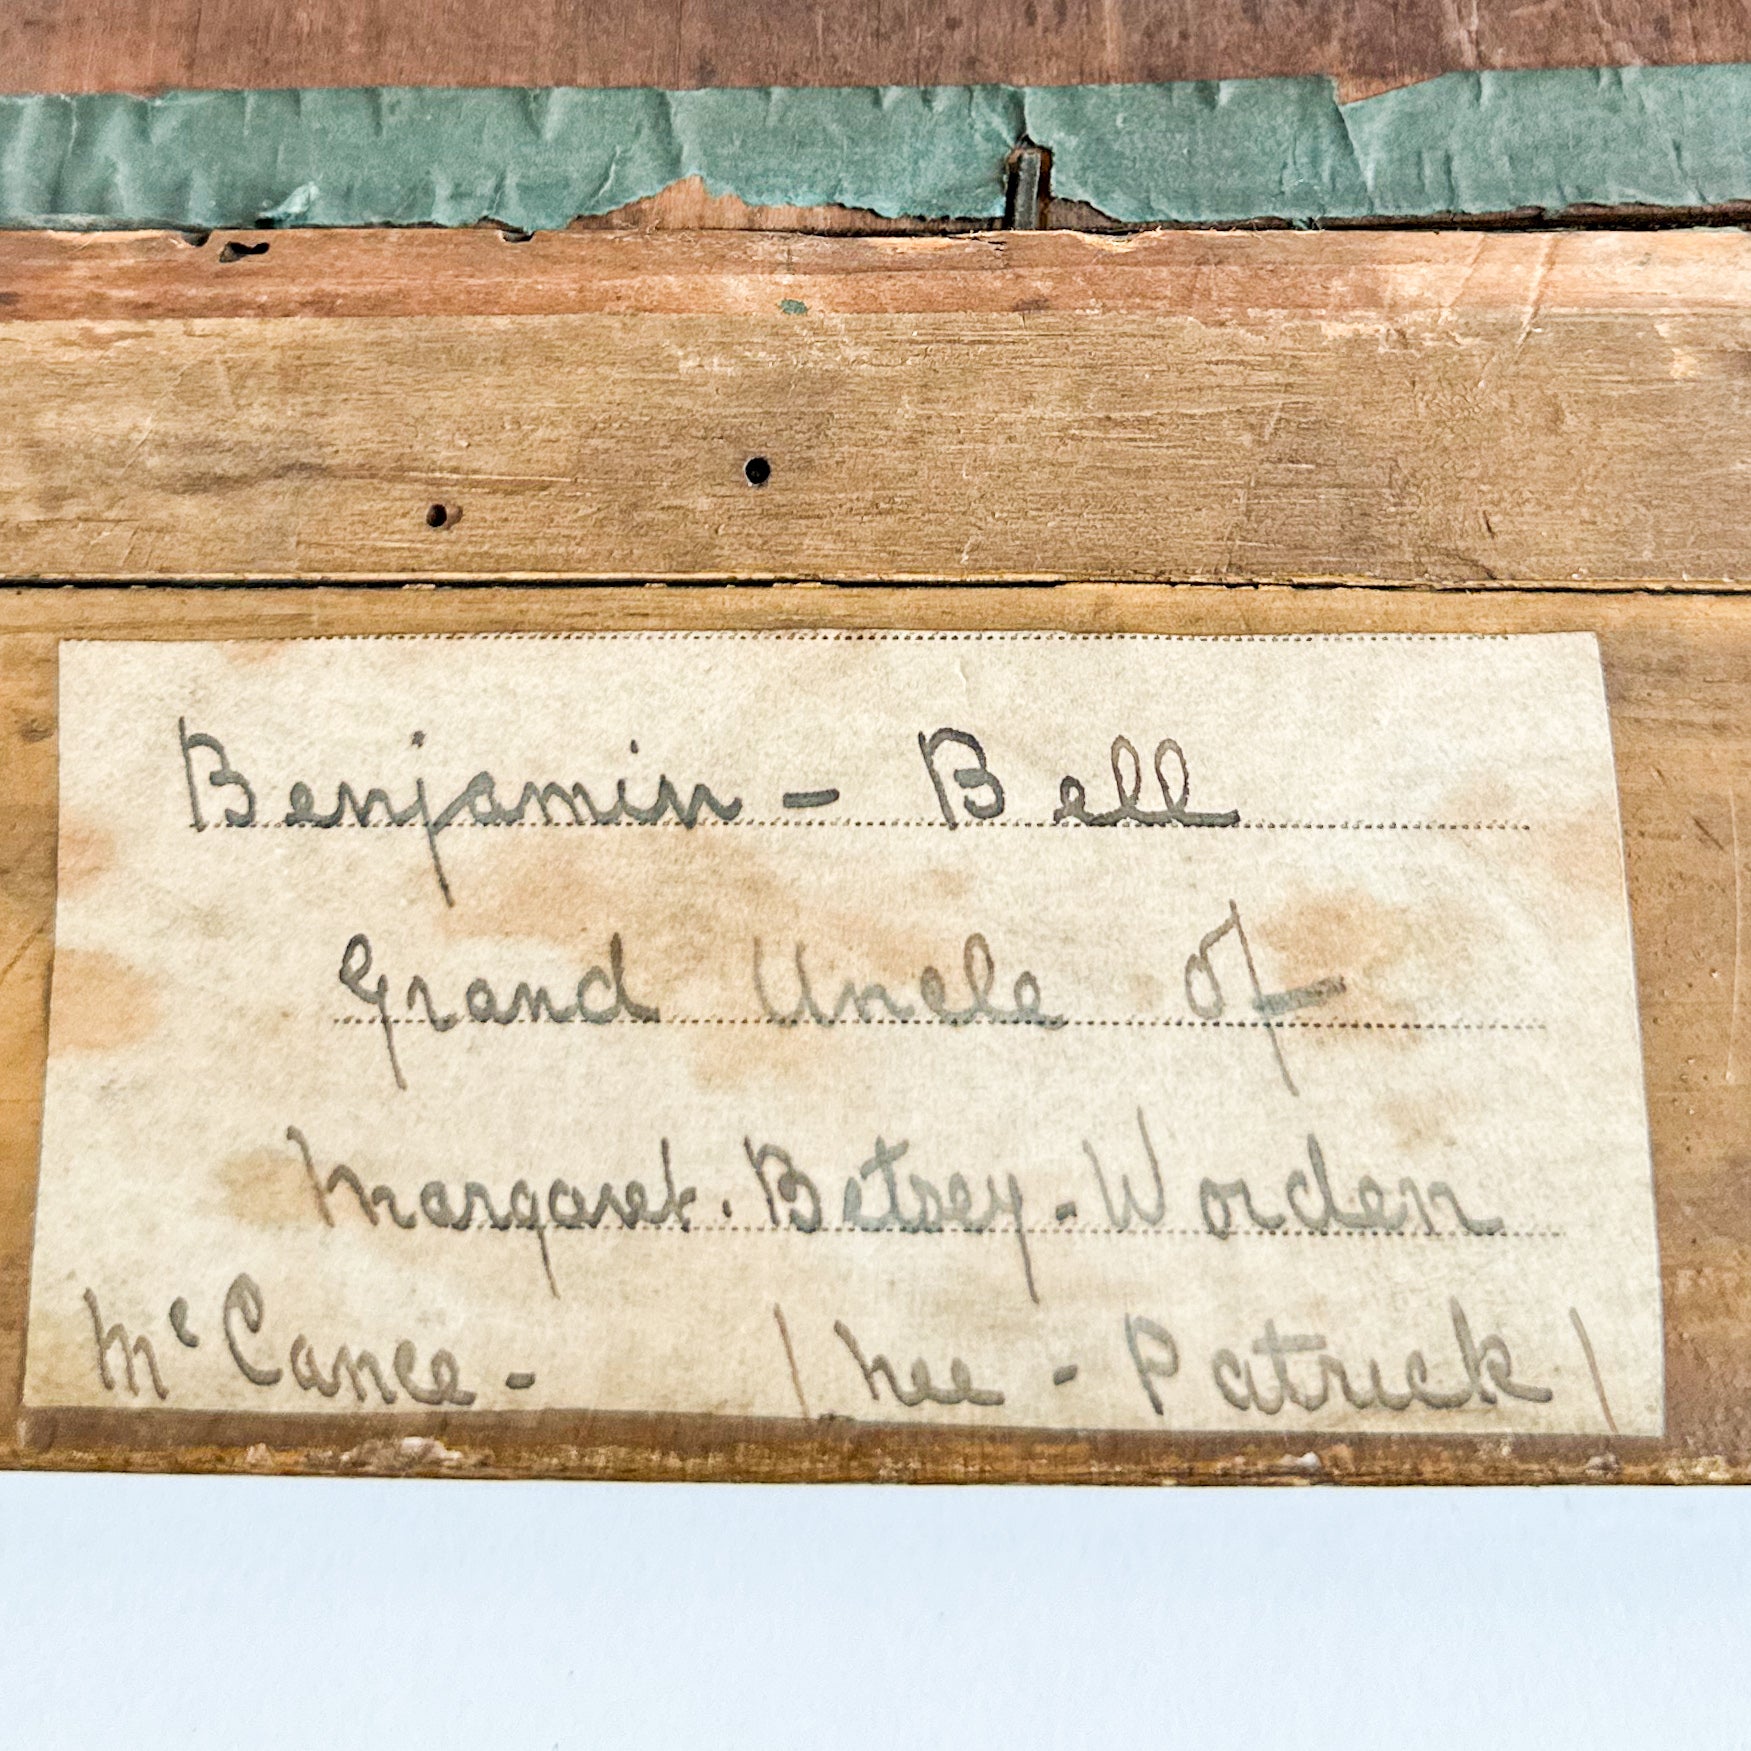 Benjamin - Bell
Grand Uncle of
Margaret. Betsey - Worden
McCance - (nee - Patrick)